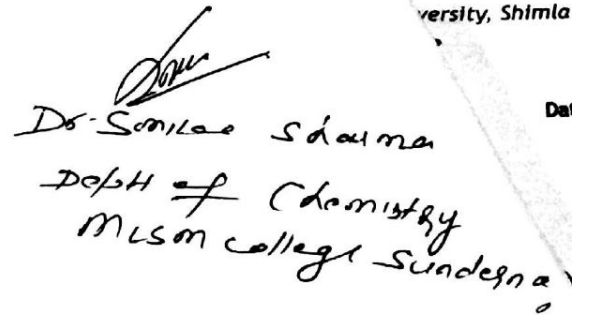 versity, Shimla
Dat
Dr. Sharma
Deptt of Chemistry
MLSM College Sunderna